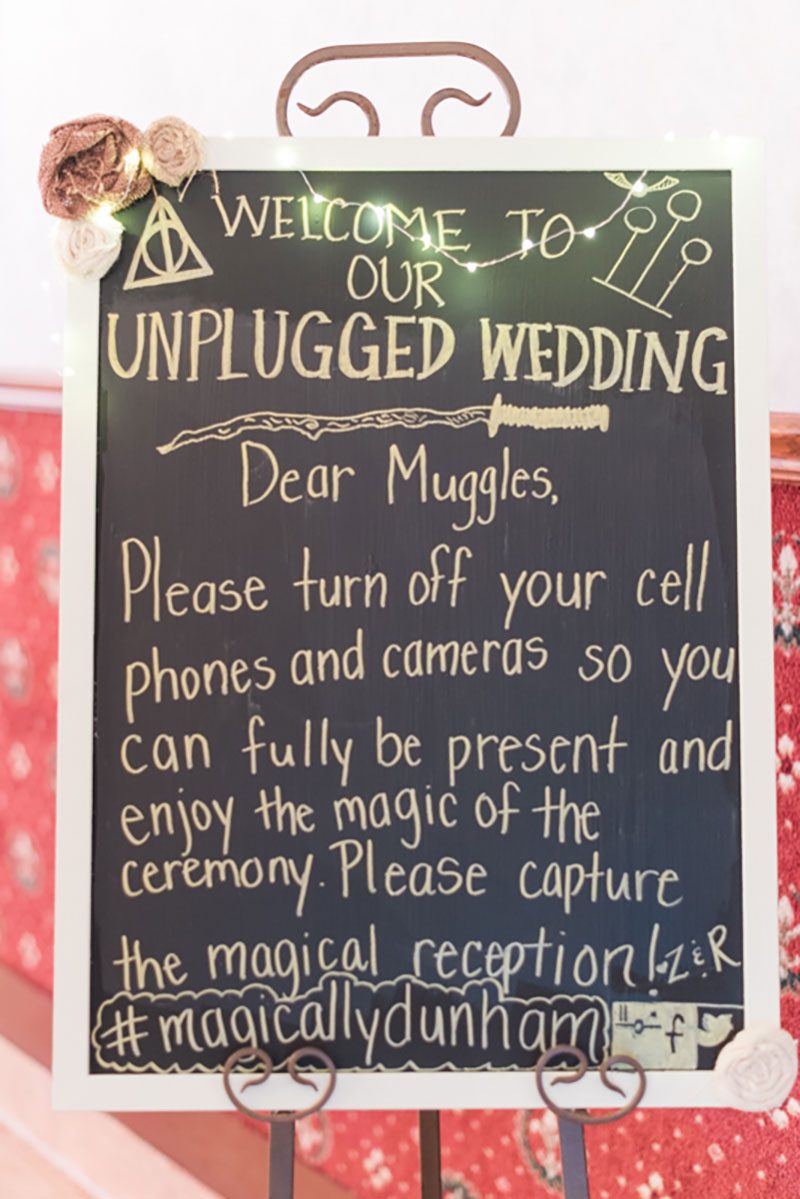 WELCOME TO
OUR
UNPLUGGED WEDDING
Dear Muggles,
Please turn off your cell
phones and cameras so you
can fully be present and
enjoy the magic of the
ceremony. Please capture
the magical reception! Z & R
#magicallydunham f